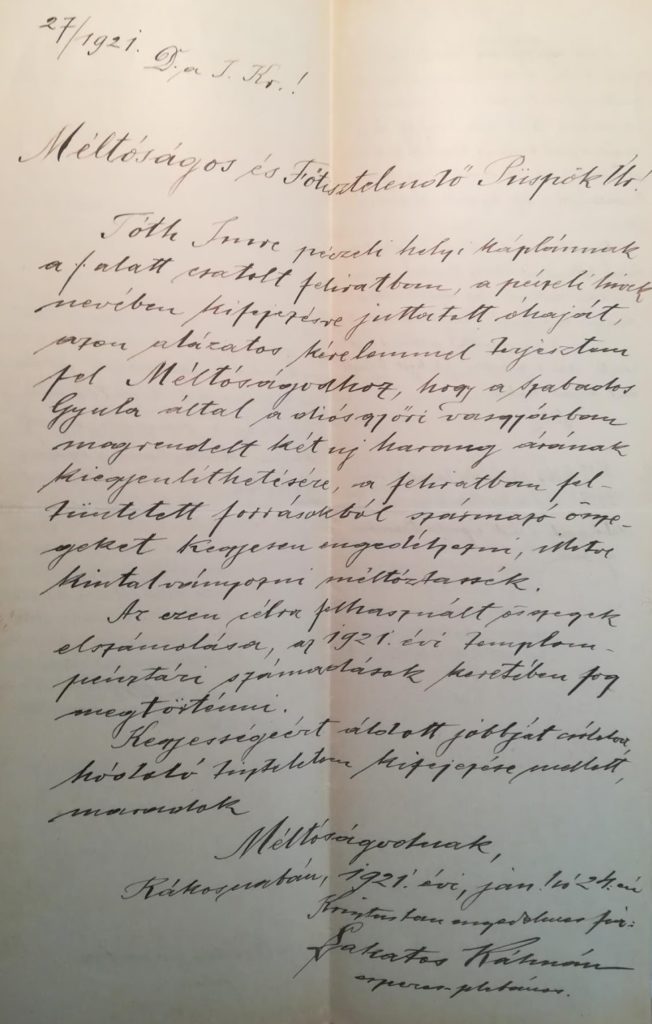 27/1921.
D. a J. Kr.!
Méltóságos és Főtisztelendő Püspök Úr!
Tóth Imre péczeli helyi káplánnak
a /. alatt csatolt feliratban, a péczeli hívek
nevében kifejezésre juttatott óhaját,
azon alázatos kérelemmel terjesztem
fel Méltóságodhoz, hogy a Szabados
Gyula által a diósgyőri vasgyárban
megrendelt két uj harang árának
kiegyenlíthetésére, a feliratban fel-
tüntetett forrásokból származó össze-
geket kegyesen engedélyezni, illetve
kintalványozni méltóztassék.
Az ezen célra felhasznált összegek
elszámolása, az 1921. évi templom-
pénztári számadások keretében fog
megtörténni.
Kegyességeért áldott jobbját csókolva,
hódoló tiszteletem kifejezése mellett,
maradok
Méltóságodnak,
Rákoscsabán, 1921. évi, jan. hó 24.-én
Krisztusban engedelmes fia:
Lakatos Kálmán
esperes-plébános.